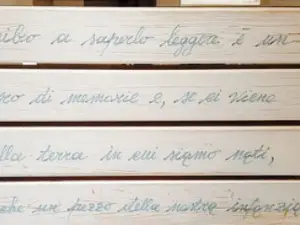 libro a saperlo leggere è un
zzo di memorie e, se ci viene
lla terra in cui siamo nati,
nche un pezzo della nostra infanzia